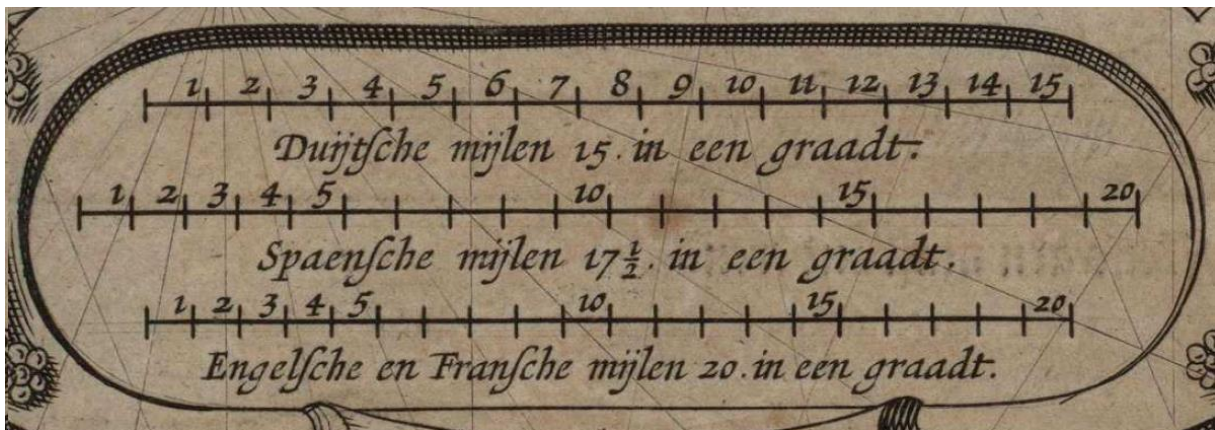 1 2 3 4 5 6 7 8 9 10 11 12 13 14 15
Duijtſche mijlen 15. in een graadt.
1 2 3 4 5 10 15 20
Spaenſche mijlen 17½. in een graadt.
1 2 3 4 5 10 15 20
Engelſche en Franſche mijlen 20. in een graadt.